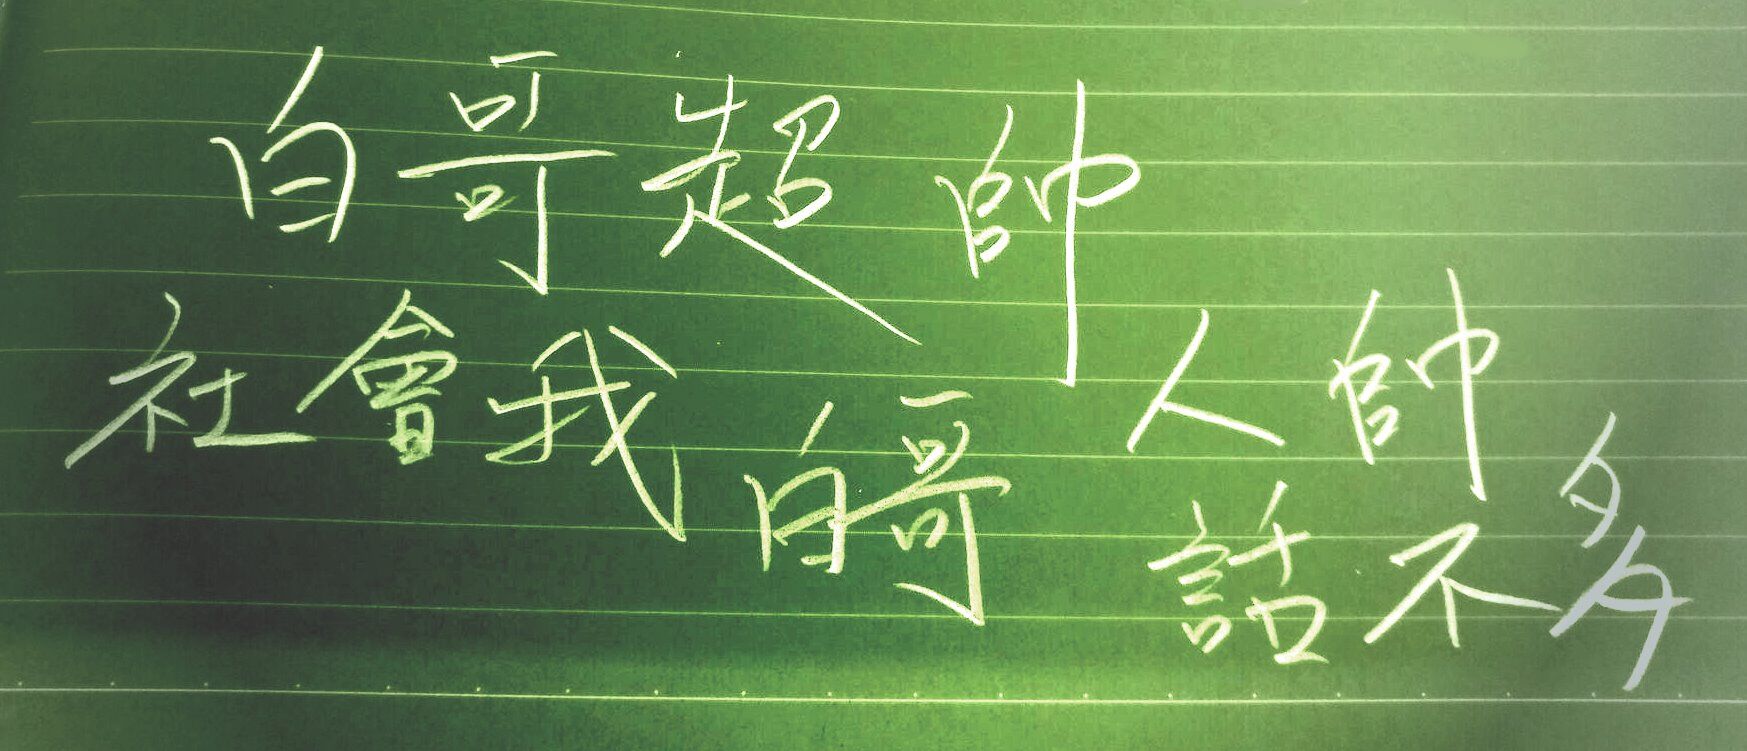 白哥超帥
社會我白哥 人帥
話不多